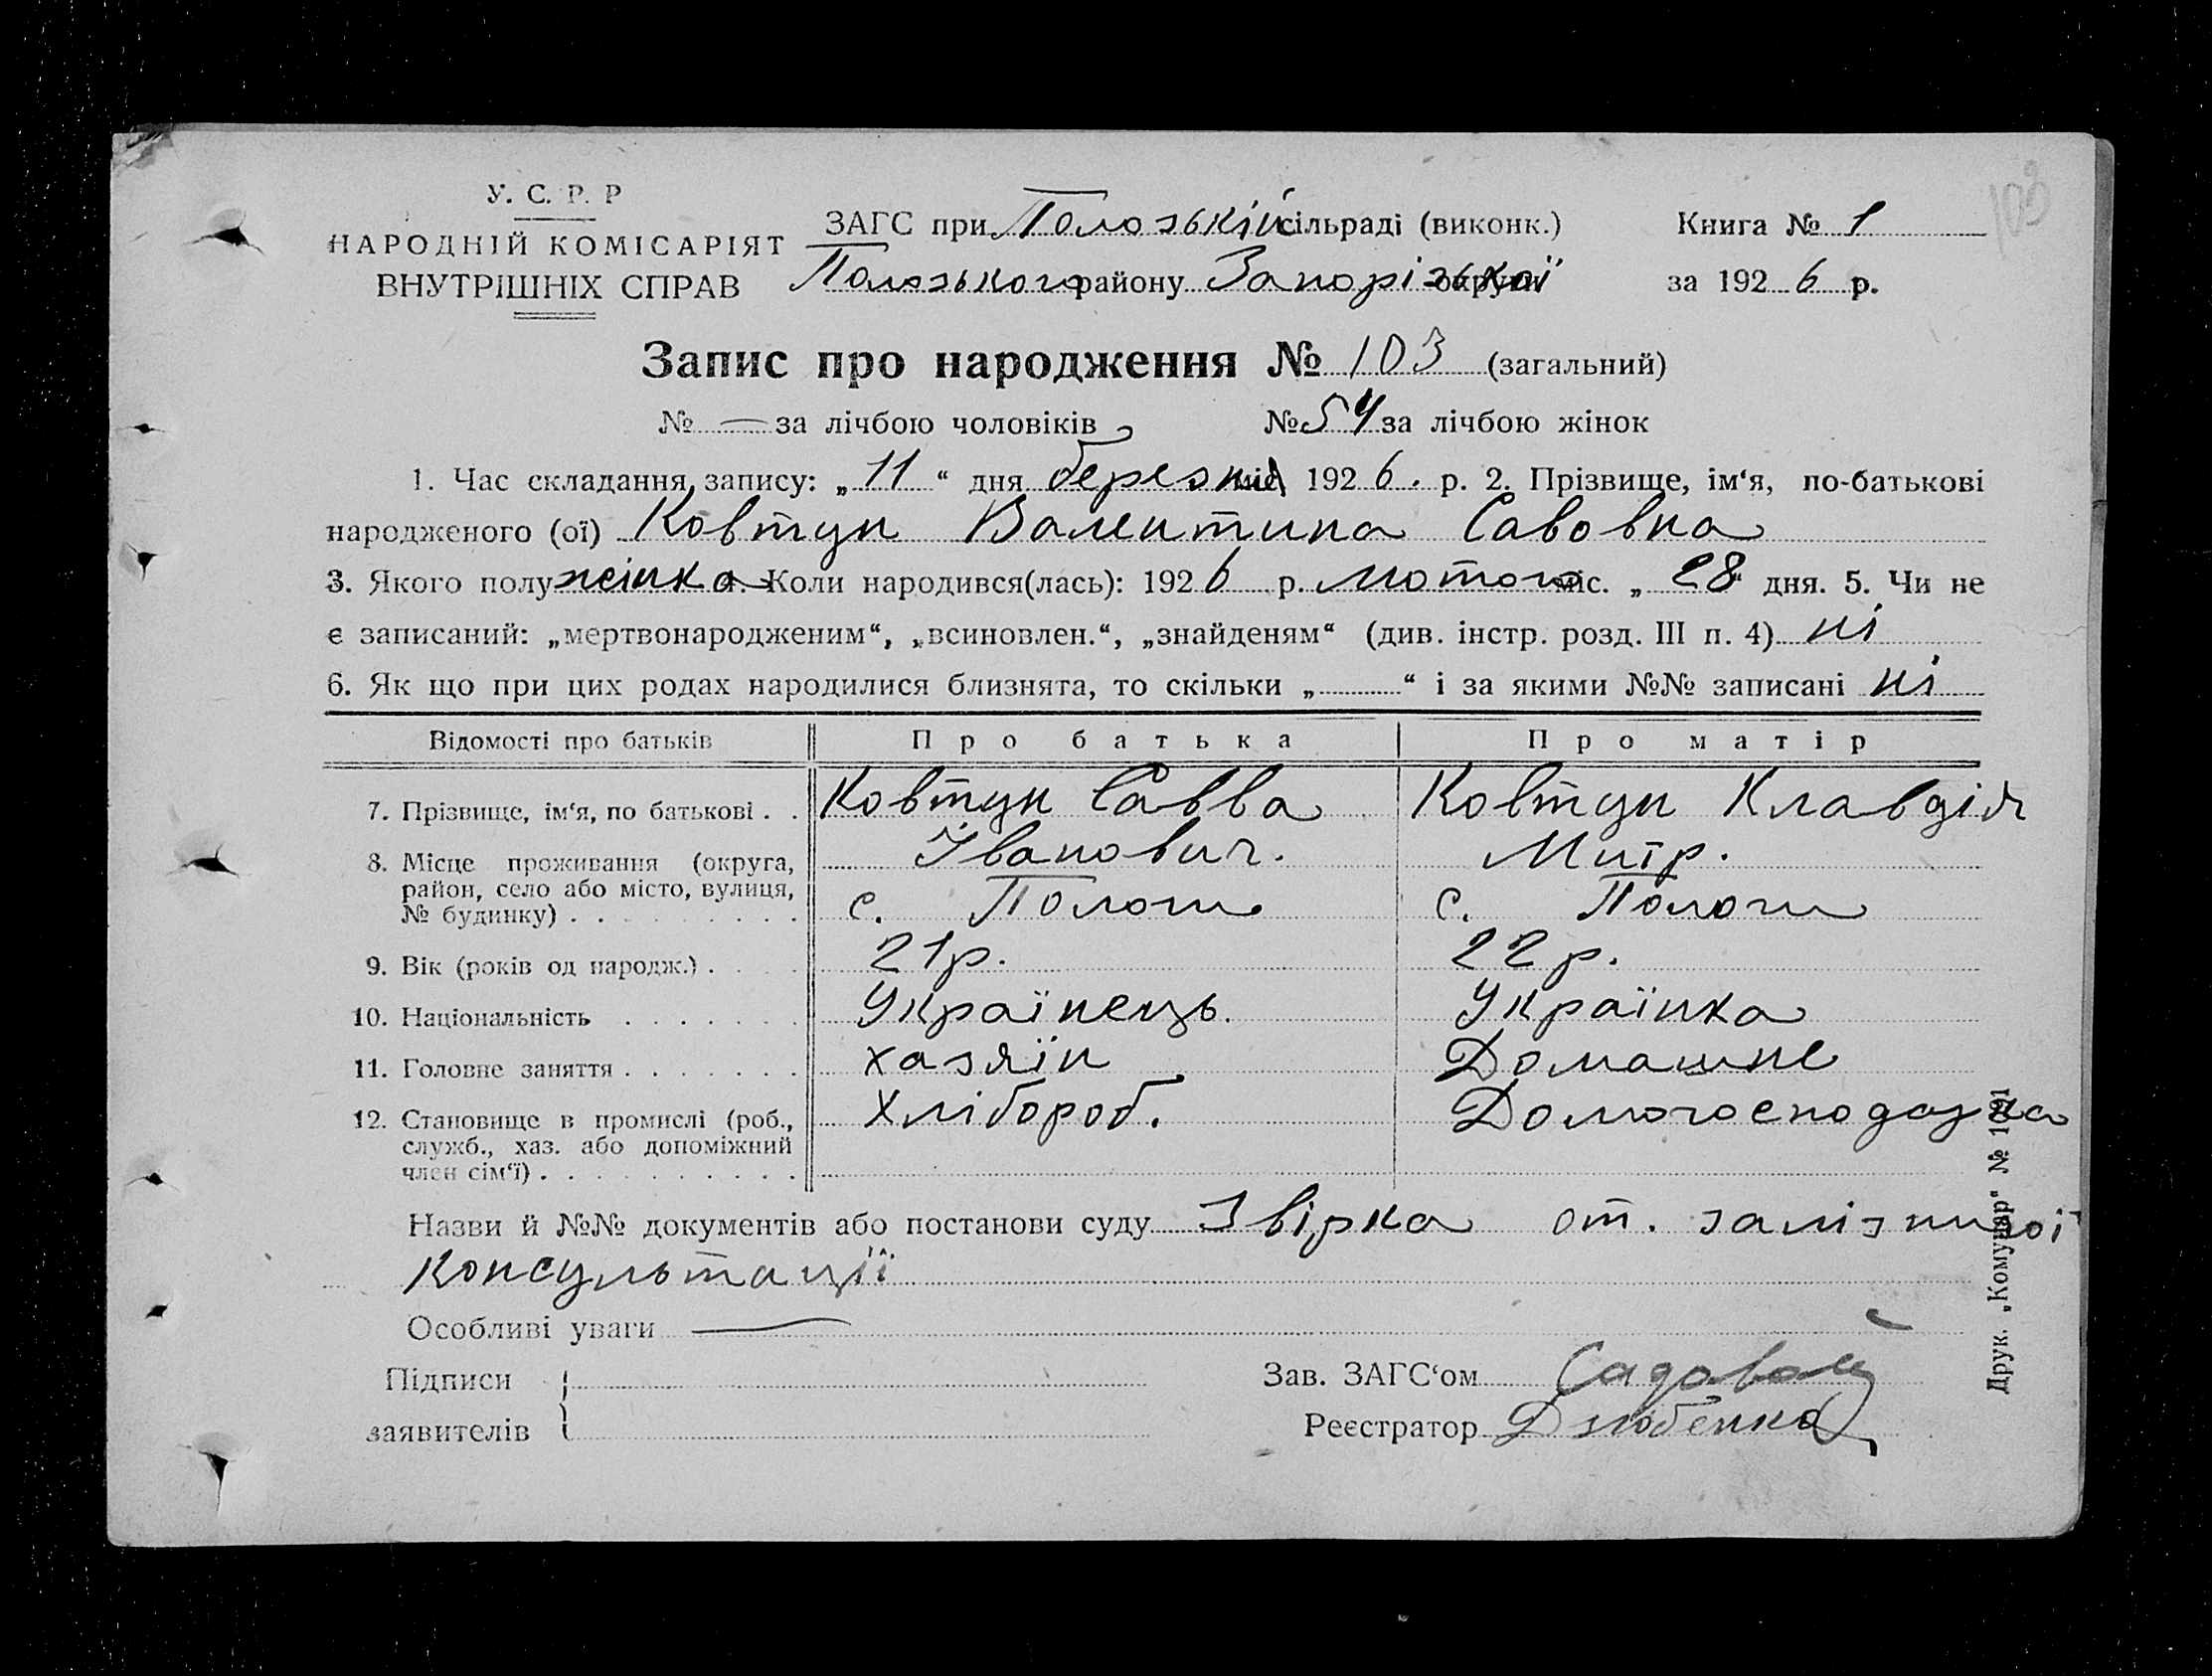 103
У. С. Р. Р
НАРОДНІЙ КОМІСАРІЯТ
ВНУТРІШНІХ СПРАВ
ЗАГС при Полозькій сільраді (виконк.)
Полозького району Запорізької округи
Книга № 1
за 1926 р.
Запис про народження № 103 (загальний)
№ — за лічбою чоловіків № 54 за лічбою жінок
1. Час складання запису: „11“ дня березня міс. 1926. р. 2. Прізвище, ім‘я, по-батькові
народженого (ої) Ковтун Валентина Савовна
3. Якого полу жінка 4. Коли народився(лась): 1926 р. лютого міс. „28“ дня. 5. Чи не
є записаний: „мертвонародженим“, „всиновлен.“, „знайденям“ (див. інстр. розд. III п. 4) ні
6. Як що при цих родах народилися близнята, то скільки „ “ і за якими №№ записані ні
Відомості про батьків Про батька Про матір
7. Прізвище, ім‘я, по батькові . . Ковтун Савва Ковтун Клавдія
Іванович. Митр.
8. Місце проживання (округа,
район, село або місто, вулиця,
№ будинку) . . . . . . . . . с. Пологи с. Пологи
9. Вік (років од народж.) . . . . 21р. 22р.
10. Національність . . . . . . . Українець. Українка
11. Головне заняття . . . . . . . хазяїн Домашне
12. Становище в промислі (роб., Хлібороб. Домогосподарка
служб., хаз. або допоміжний
член сім‘ї) . . . . . . . . . .
Назви й №№ документів або постанови суду Звірка от. залізничої
консультації
Особливі уваги —
Підписи
заявителів
Зав. ЗАГС‘ом Садовой
Реєстратор Дзюбенко
Друк. „Комунар“ № 1091